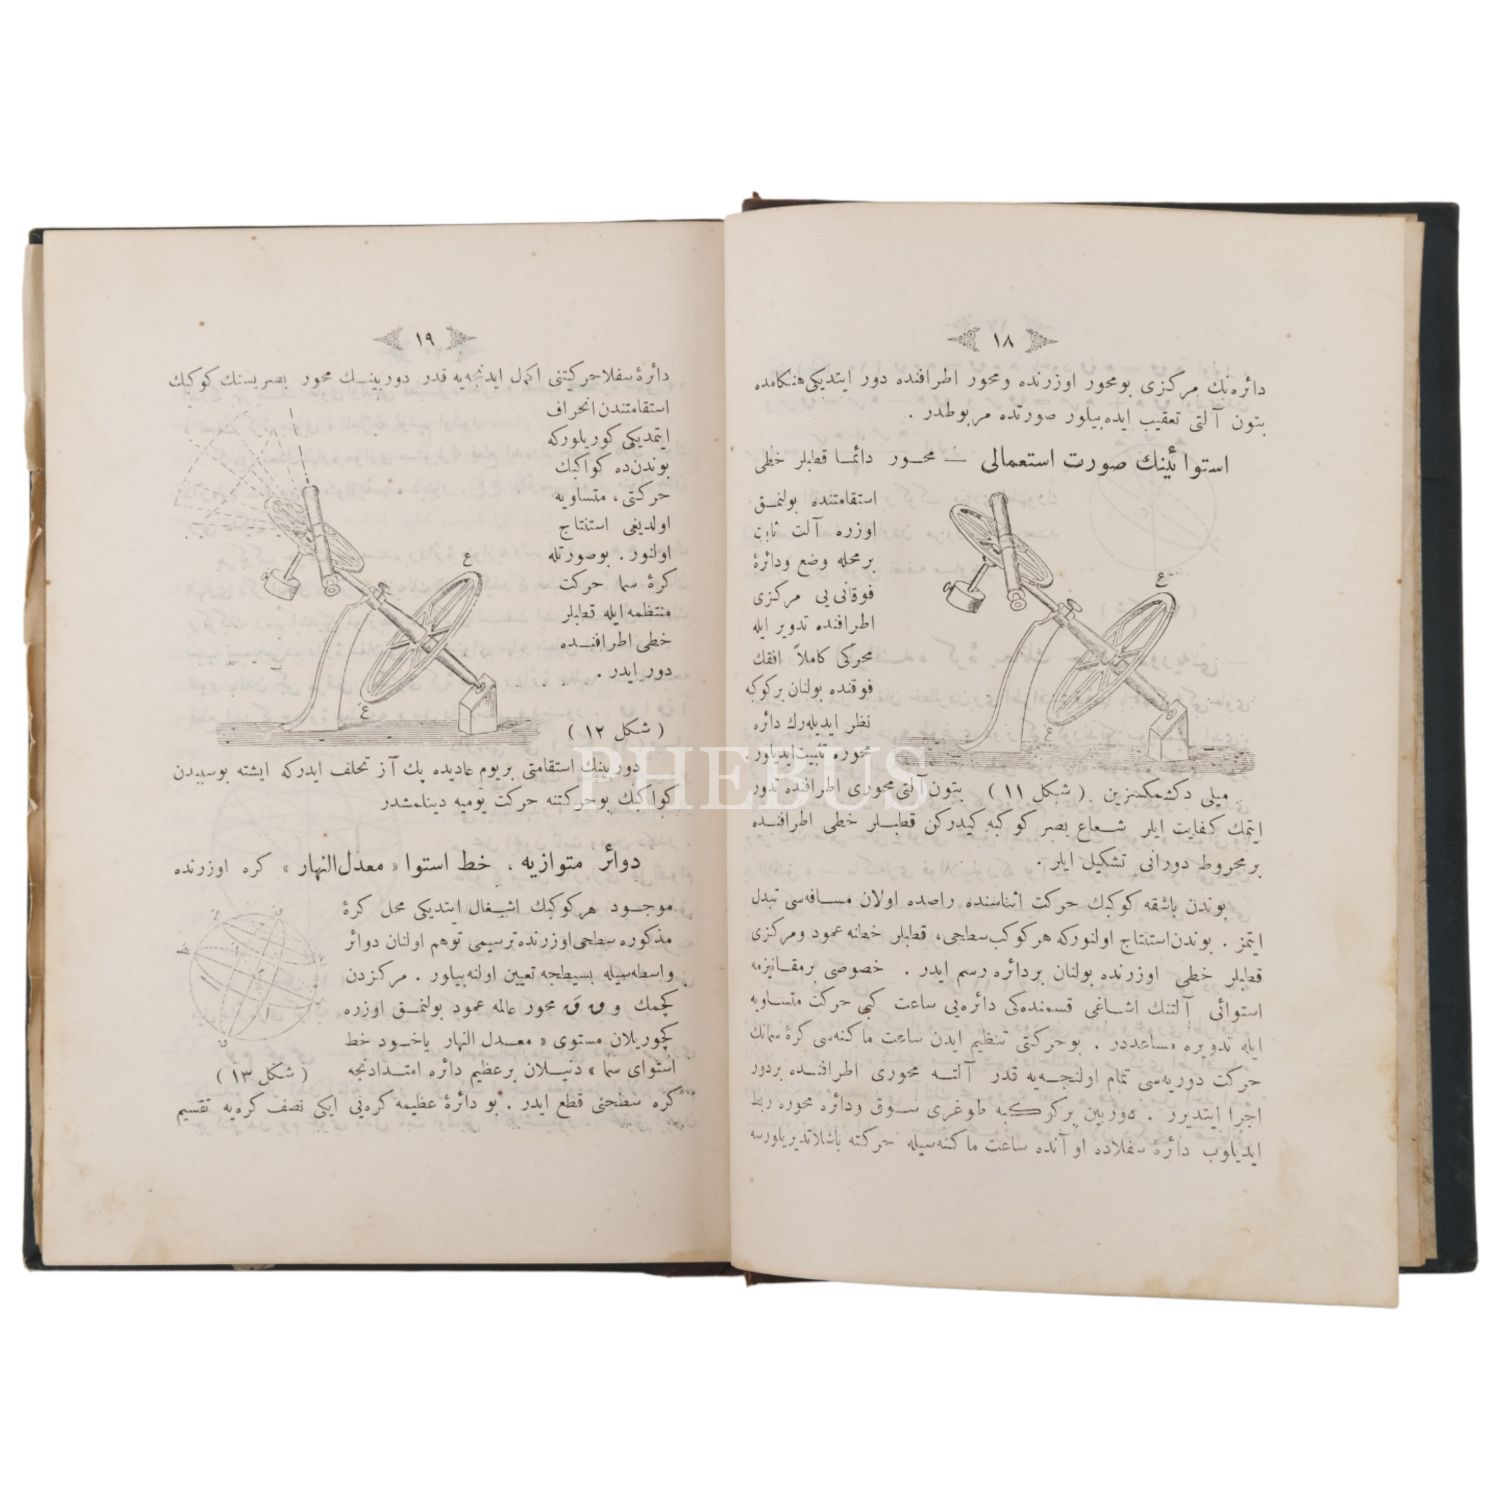 ١٨
دائره‌نك مركزى بومحور اوزرنده ومحور اطرافنده دور ايتديكى هنكامده
بتون آلتى تعقيب ايده بيلور صورتده مربوطدر .
استوائينك صورت استعمالى — محور دائما قطبلر خطى
استقامتنده بولنمق
اوزره آلت ثابت
برمحله وضع ودائرهٔ
فوقانى يى مركزى
اطرافنده تدوير ايله
محركى كاملاً افقك
فوقنده بولنان بركوكبه
نظر ايديله‌رك دائره
محوره تثبيت ايديلور
ع
ع
ميلى دكشمكسزين ( شكل ١١ ) بتون آلتى محورى اطرافنده تدور
ايتمك كفايت ايلر شعاع بصر كوكبه كيدركن قطبلر خطى اطرافنده
برمخروط دورانى تشكيل ايلر .
بوندن باشقه كوكبك حركت اثناسنده راصده اولان مسافه‌سى تبدل
ايتمز . بوندن استنتاج اولنوركه هركوكب سطحى، قطبلر خطنه عمود ومركزى
قطبلر خطى اوزرنده بولنان بردائره رسم ايدر . خصوصى برمقانيزمه
استوائى آلتنك اشاغى قسمنده‌كى دائره‌يى ساعت كبى حركت متساويه
ايله تدويره مساعددر . بوحركتى تنظيم ايدن ساعت ماكنه‌سى كرهٔ سمانك
حركت دوريه‌سى تمام اولنجه‌يه قدر آلته محورى اطرافنده بردور
اجرا ايتديرر . دوربين بركوكبه طوغرى سوق ودائره محوره ربط
ايديلوب دائرهٔ سفلاده او آنده ساعت ماكنه‌سيله حركته باشلاتديريلورسه
١٩
دائرهٔ سفلا حركتنى اكمل ايدنجه‌يه قدر دوربينك محور بصريسنك كوكبك
استقامتندن انحراف
ايتمديكى كوريلوركه
بوندن‌ده كواكبك
حركتى، متساويه
اولديغى استنتاج
اولنور . بوصورتله
كرهٔ سما حركت
منتظمه ايله قطبلر
خطى اطرافنده
دور ايدر .
ع
ع
( شكل ١٢ )
دوربينك استقامتى بريوم عاديده پك آز تخلف ايدركه ايشته بوسببدن
كواكبك بوحركتنه حركت يوميه دينلمشدر
دوائر متوازيه ، خط استوا « معدل النهار » كره اوزرنده
موجود هركوكبك اشغال ايتديكى محل كرهٔ
مذكوره سطحى اوزرنده ترسيمى توهم اولنان دوائر
واسطه‌سيله بسيطجه تعيين اولنه‌بيلور . مركزدن
كچمك و ق ق محور عالمه عمود بولنمق اوزره
كچوريلان مستوى « معدل النهار ياخود خط
استواى سما » دنيلان برعظيم دائره امتدادنجه
( شكل ١٣ )
كره سطحنى قطع ايدر . بو دائرهٔ عظيمه كره‌نى ايكى نصف كره‌يه تقسيم
PHEBUS